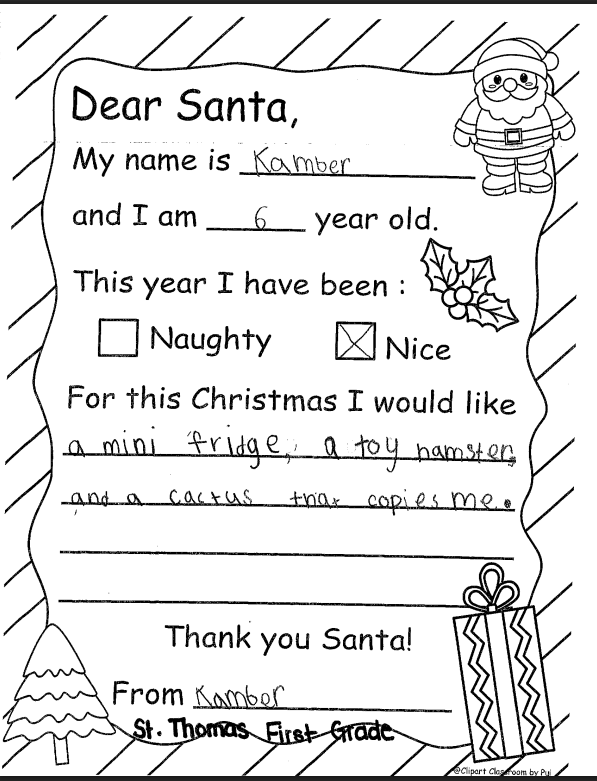 Dear Santa,
My name is Kamber
and I am 6 year old.
This year I have been :
Naughty Nice
For this Christmas I would like
a mini fridge, a toy hamster,
and a cactus that copies me.
Thank you Santa!
From Kamber
St. Thomas First Grade
@Clipart Classroom by Pui